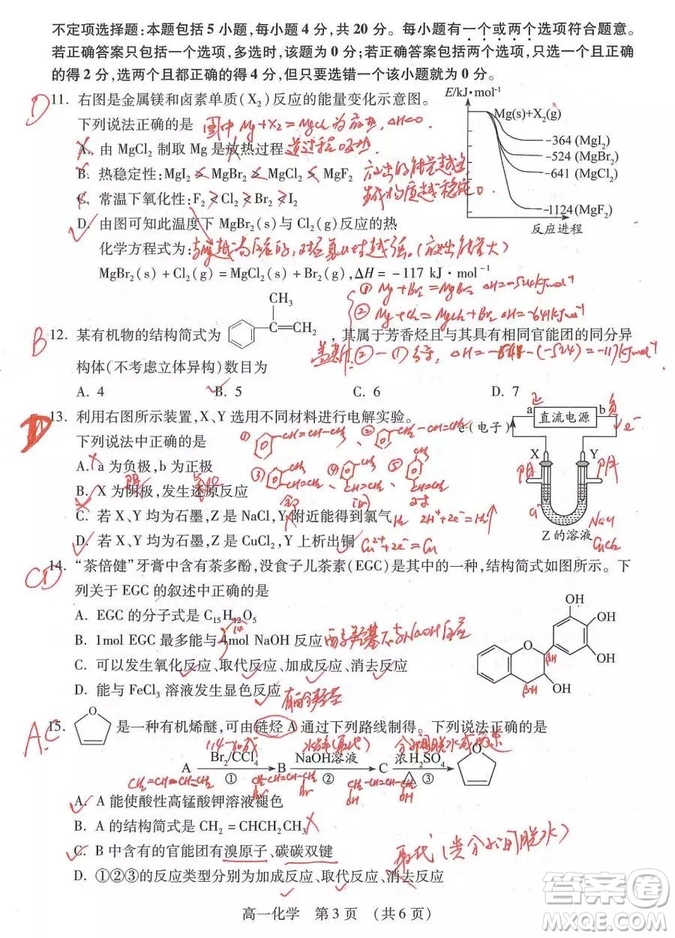 不定项选择题：本题包括5小题，每小题4分，共20分。每小题有一个或两个选项符合题意。
若正确答案只包括一个选项，多选时，该题为0分；若正确答案包括两个选项，只选一个且正确
的得2分，选两个且都正确的得4分，但只要选错一个该小题就为0分。
D
11. 右图是金属镁和卤素单质(X₂)反应的能量变化示意图。
下列说法正确的是
A. 由MgCl₂制取Mg是放热过程
B. 热稳定性：MgI₂
MgBr₂
MgCl₂
MgF₂
C. 常温下氧化性：F₂
Cl₂
Br₂
I₂
D. 由图可知此温度下MgBr₂与Cl₂反应的热
化学方程式为：
MgBr₂(s)+Cl₂(g)=MgCl₂(s)+Br₂(g)，ΔH=－117 kJ·mol⁻¹
E/kJ·mol⁻¹
Mg(s)+X₂(g)
-364 (MgI₂)
-524 (MgBr₂)
-641 (MgCl₂)
-1124(MgF₂)
反应进程
B
12. 某有机物的结构简式为
CH₃
CH₂
，其属于芳香烃且与其具有相同官能团的同分异
构体(不考虑立体异构)数目为
A. 4
B. 5
C. 6
D. 7
D
13. 利用右图所示装置，X、Y选用不同材料进行电解实验。
下列说法中正确的是
A. a为负极，b为正极
B. X为阴极，发生还原反应
C. 若X、Y均为石墨，Z是NaCl，Y附近能得到氯气
D. 若X、Y均为石墨，Z是CuCl₂，Y上析出铜
2H⁺+2e⁻=H₂↑
Cu²⁺+2e⁻=Cu
正
负
a
直流电源
b
e⁻(电子)
e⁻
X
Y
Z的溶液
NaCl
CuCl₂
CD
14. “茶倍健”牙膏中含有茶多酚，没食子儿茶素(EGC)是其中的一种，结构简式如图所示。下
列关于EGC的叙述中正确的是
A. EGC的分子式为C₁₅H₁₂O₅
14
B. 1mol EGC最多能与4mol NaOH反应
C. 可以发生氧化反应、取代反应、加成反应、消去反应
D. 能与FeCl₃溶液发生显色反应
有酚羟基
OH
OH
OH
OH
A.C
15.
是一种有机烯醚，可由链烃A通过下列路线制得。下列说法正确的是
A
Br₂/CCl₄
①
B
NaOH溶液
②
C
浓H₂SO₄
③
A. A能使酸性高锰酸钾溶液褪色
B. A的结构简式是CH₂=CHCH₂CH₃
C. B中含有的官能团有溴原子、碳碳双键
D. ①②③的反应类型分别为加成反应、取代反应、消去反应
取代(类分子间脱水)
高一化学　第3页　(共6页)
答案圈
MXQE.COM